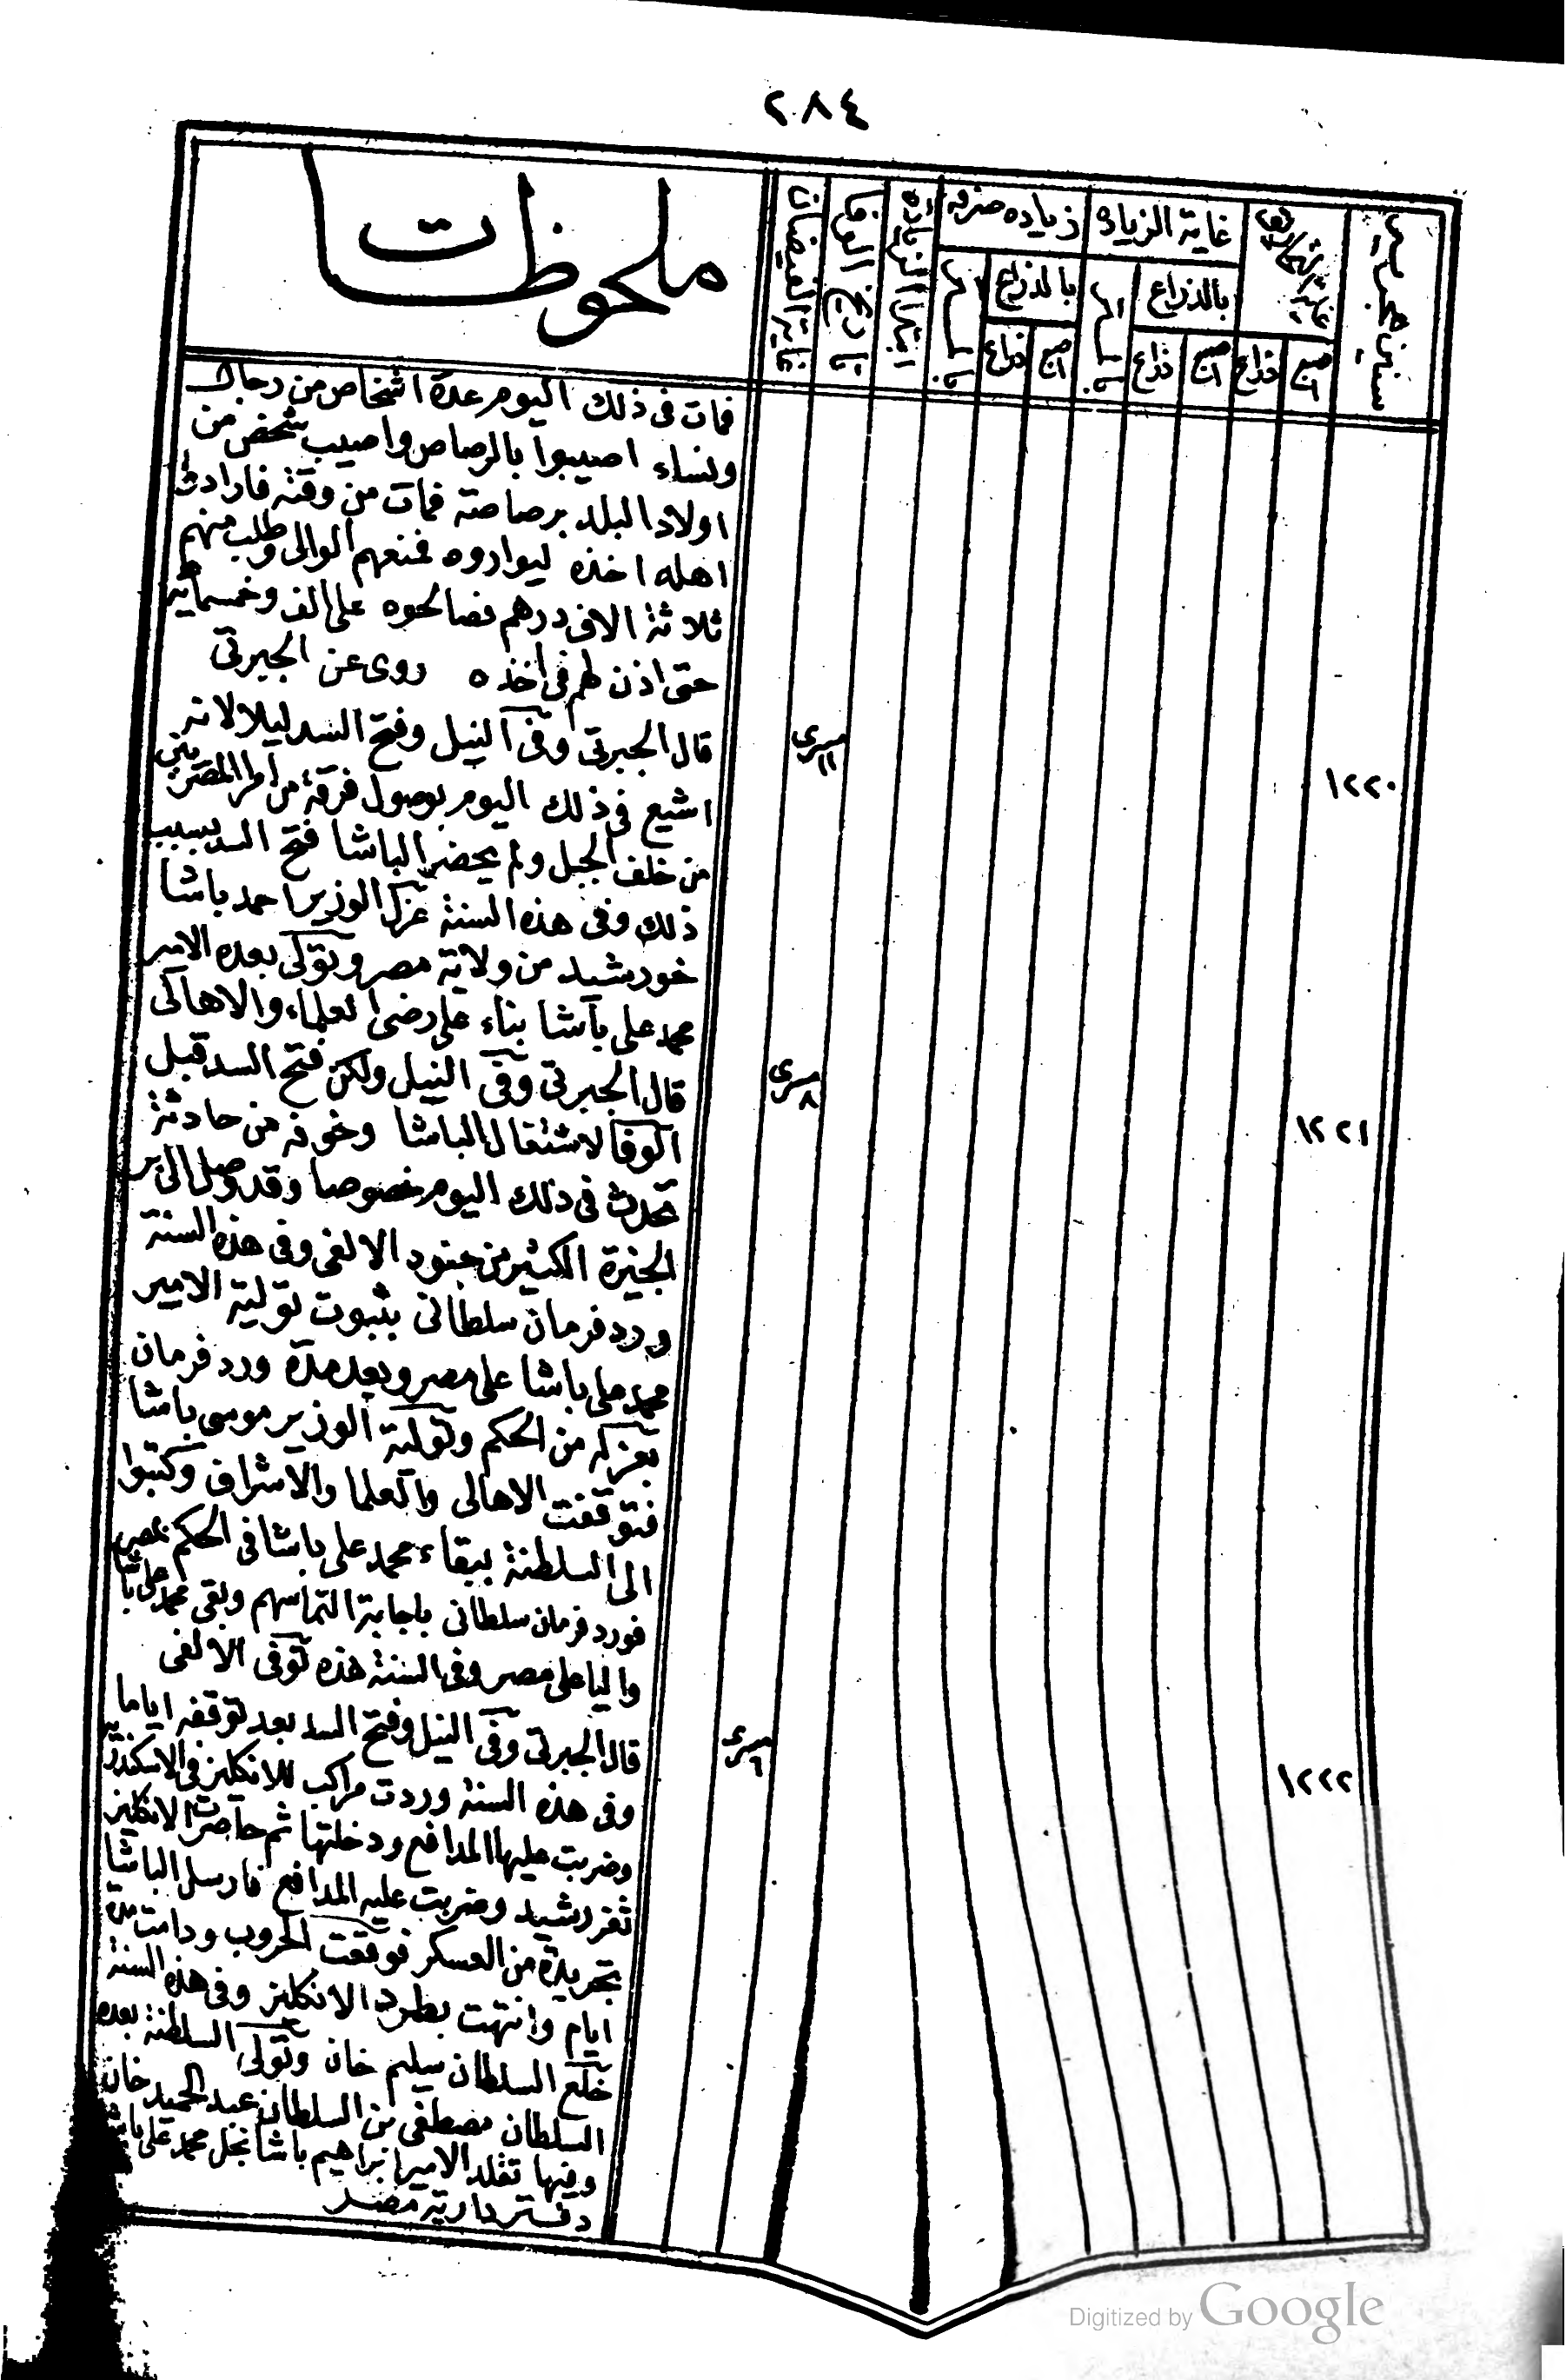 ٢٨٤
سنين هجرية
غاية الزياده
زياده صرفه
ابتدا الزياده
تاريخ الوفا
غاية الفيضان
ملحوظات
بالذراع
بالذراع
اصبع
ذراع
اصبع
ذراع
اصبع
ذراع
فمات فى ذلك اليوم عدة اشخاص من رجال
ونساء اصيبوا بالرصاص واصيب شخص من
اولاد البلد برصاصة فمات من وقته فارادت
اهله اخذه ليواروه فمنعهم الوالى وطلب منهم
ثلاثة الاف درهم فصالحوه على الف وخمسماية
حتى اذن لهم فى اخذه روى عن الجبرتى
١٢٢٠
مسرى ١١
قال الجبرتى وفى النيل وفتح السد ليلا لانه
اشيع فى ذلك اليوم بوصول فرقة من امرا المصريين
من خلف الجبل ولم يحضر الباشا فتح السد بسبب
ذلك وفى هذه السنة عزل الوزير احمد باشا
خورشيد من ولاية مصر وتولى بعده الامير
محمد على باشا بناء على رضى العلماء والاهالى
١٢٢١
مسرى ٨
قال الجبرتى وفى النيل ولكن فتح السد قبل
الوفا لاشتغال الباشا وخوفه من حادثة
تحدث فى ذلك اليوم خصوصا وقد وصل الى بر
الجيزة الكثير من جنود الالفى وفى هذه السنة
ورد فرمان سلطانى بثبوت تولية الامير
محمد على باشا على مصر وبعد مدة ورد فرمان
بعزله من الحكم وتولية الوزير موسى باشا
فتوقفت الاهالى والعلما والاشراف وكتبوا
الى السلطنة ببقاء محمد على باشا فى الحكم بمصر
فورد فرمان سلطانى باجابة التماسهم وبقى محمد على باشا
واليا على مصر وفى السنة هذه توفى الالفى
١٢٢٢
مسرى ٦
قال الجبرتى وفى النيل وفتح السد بعد توقفه اياما
وفى هذه السنة وردت مراكب للانكليز فى الاسكندرية
وضربت عليها المدافع ودخلتها ثم حاصرت الانكليز
ثغر رشيد وضربت عليه المدافع فارسل الباشا
تجريدة من العسكر فوقعت الحروب ودامت مدة
ايام وانتهت بطرد الانكليز وفى هذه السنة
خلع السلطان سليم خان وتولى السلطنة بعده
السلطان مصطفى بن السلطان عبد الحميد خان
وفيها تقلد الامير ابراهيم باشا نجل محمد على باشا
دفتردارية مصر
Digitized by Google